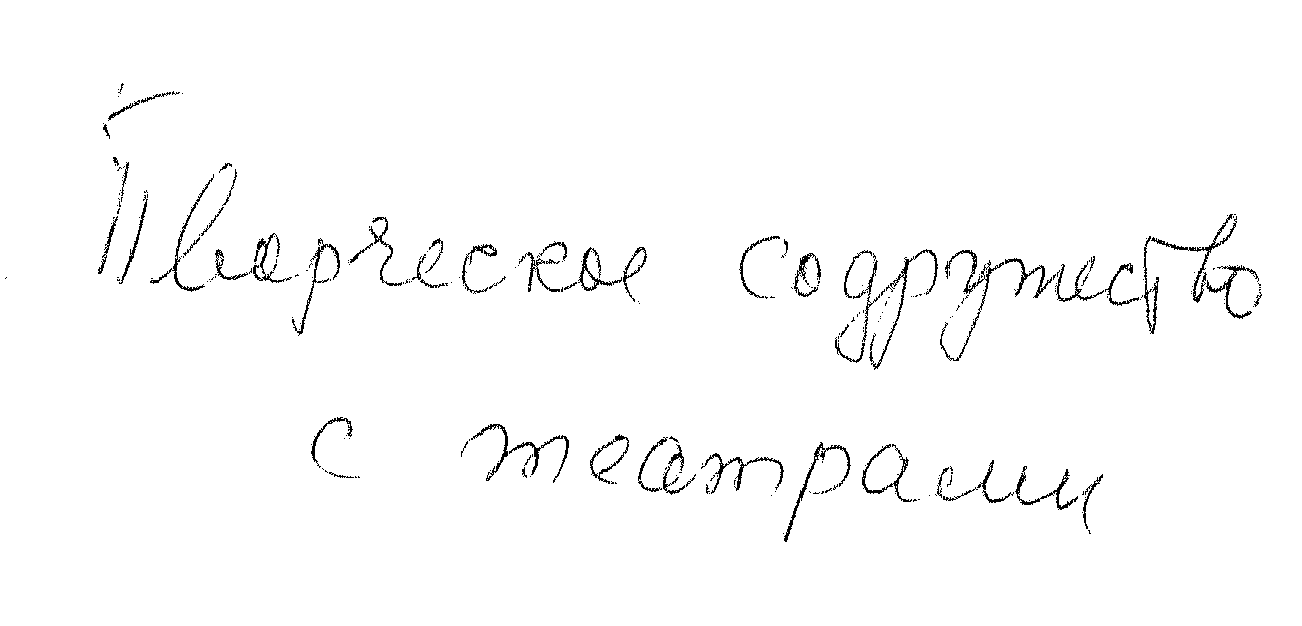 Творческое содружество
с театрами